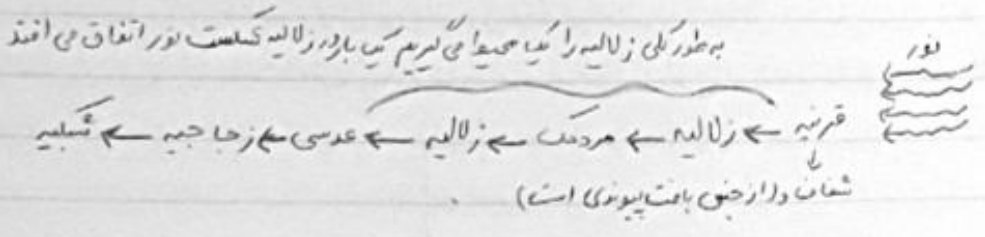 به طور کلی زلالیه را یک محیط می‌گیریم یک بار در زلالیه شکست نور اتفاق می افتد
نور
قرنیه ← زلالیه ← مردمک ← زلالیه ← عدسی ← زجاجیه ← شبکیه
شفاف و (از جنس بافت پیوندی است)